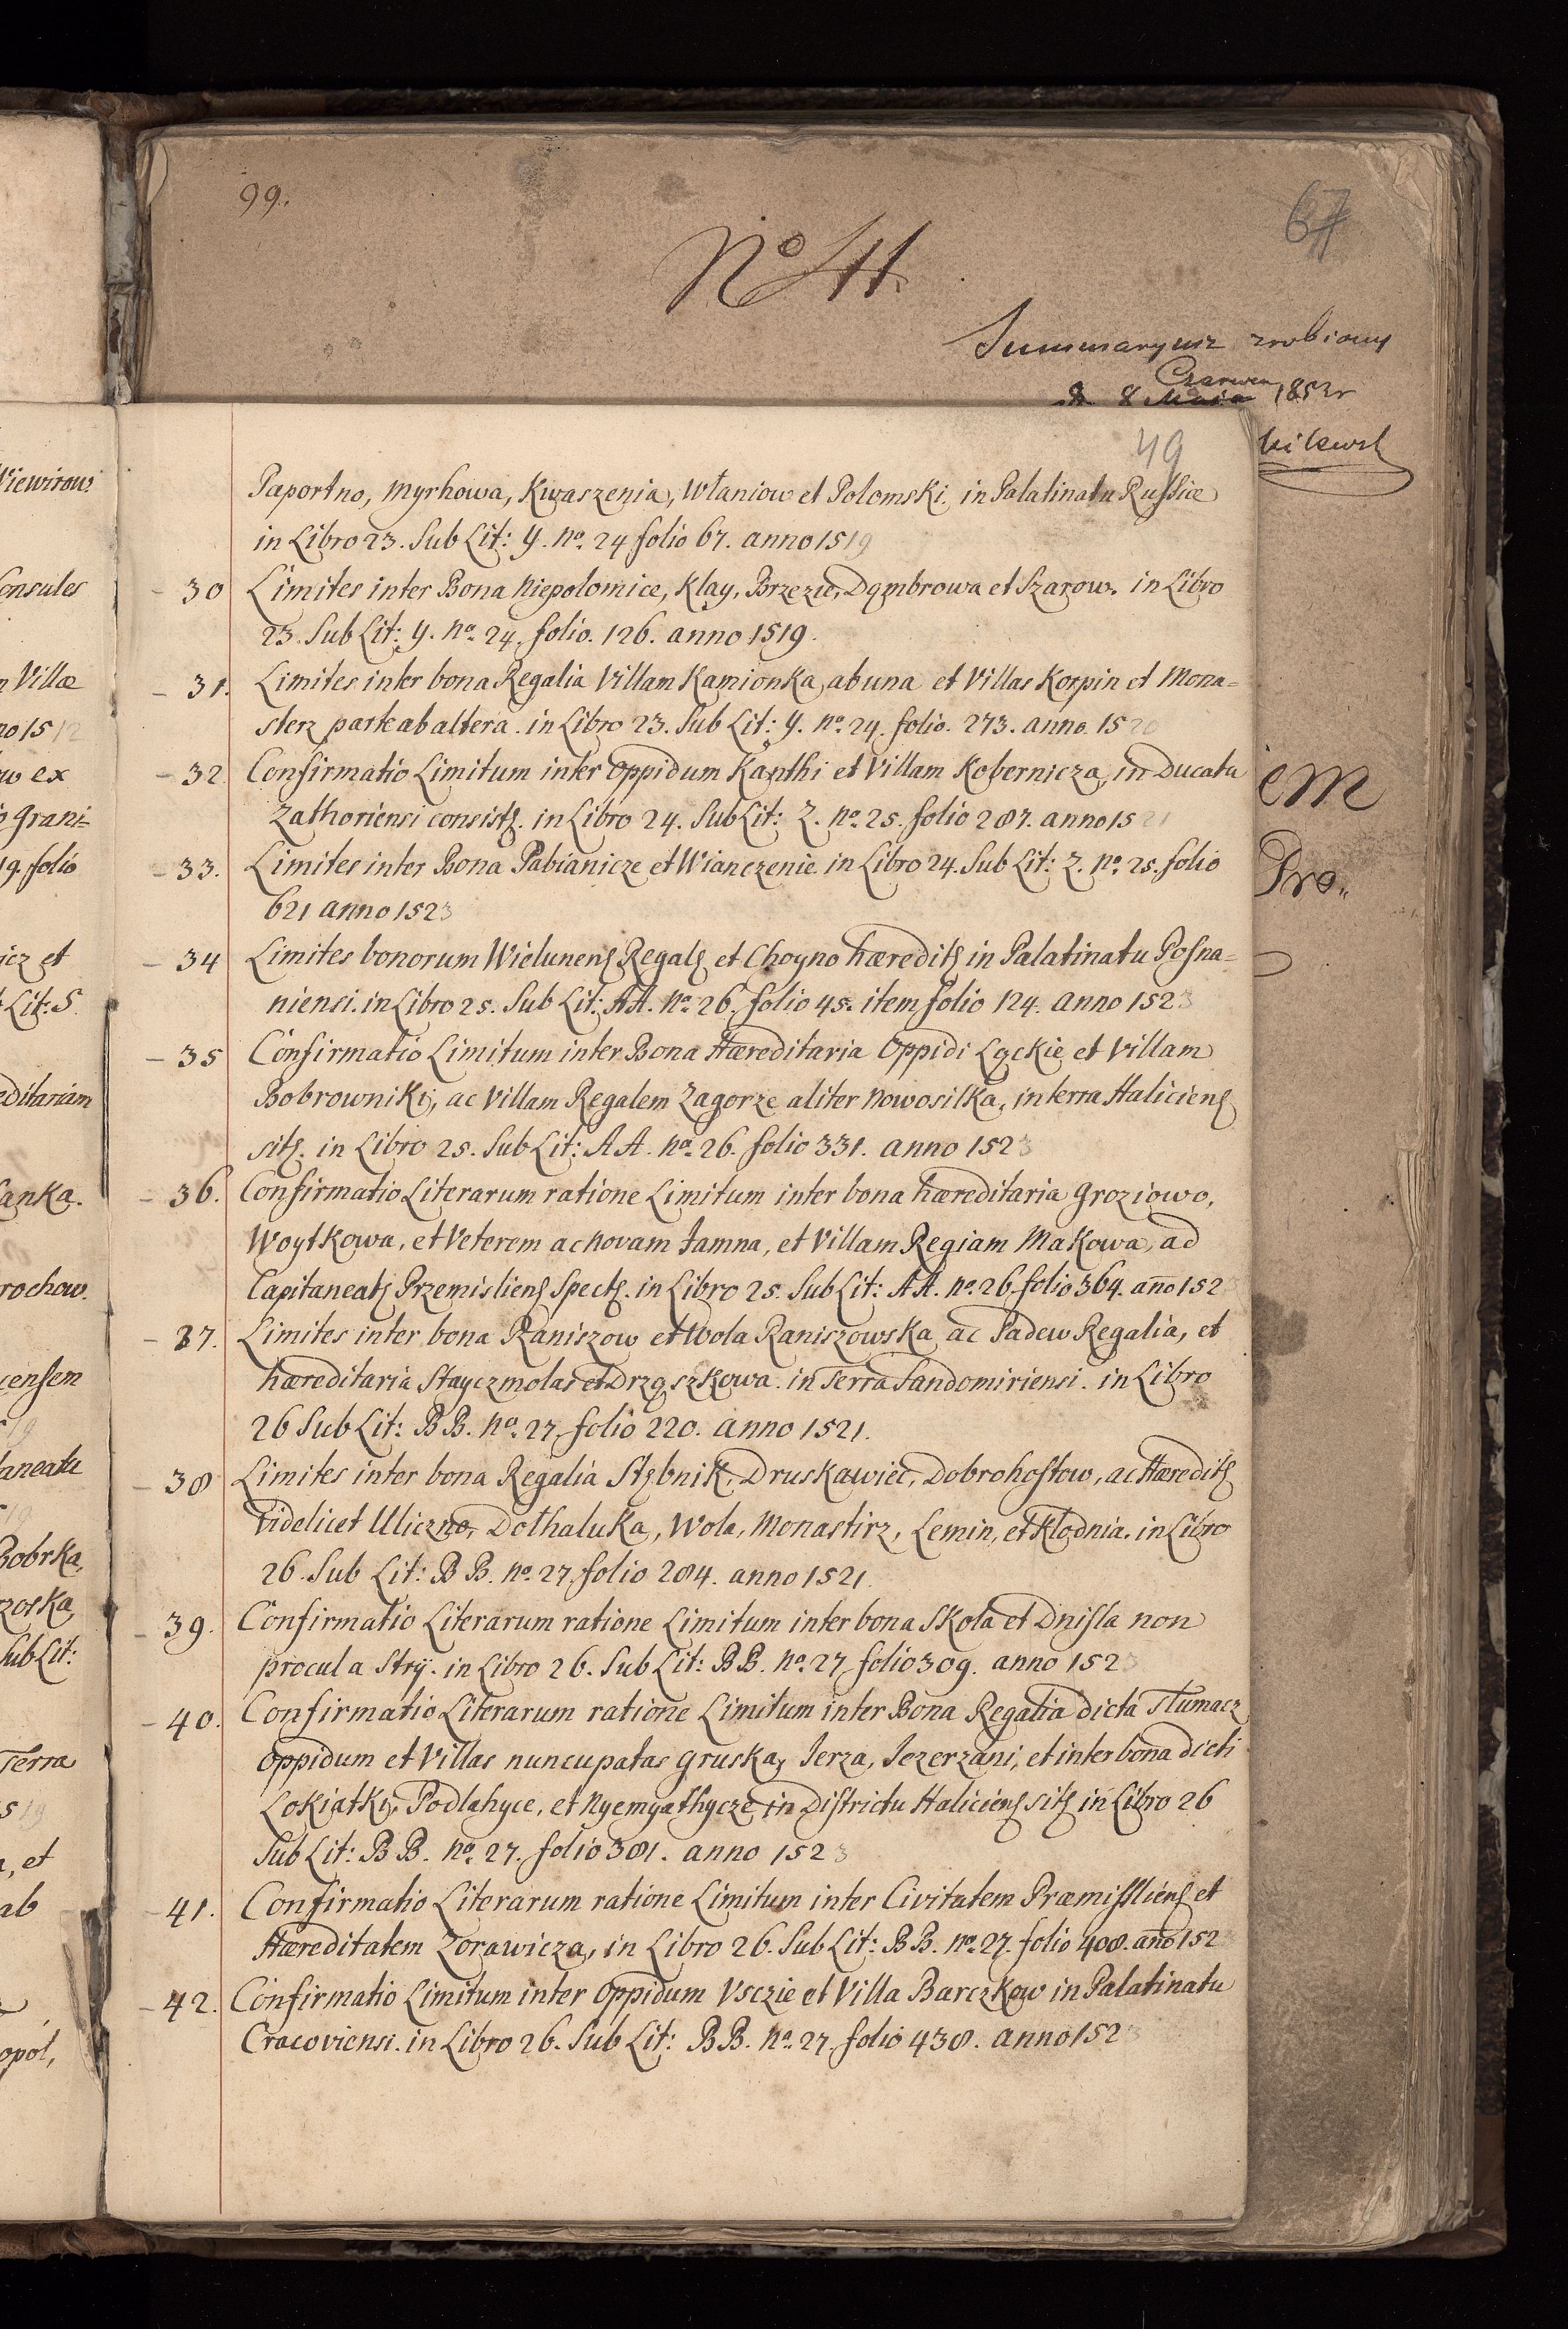 99.
67
No 41.
Summaryusz zrobiony
Czerwca
d 8 Maia 1853r
49
Paportno, Myrhowa, Kwaszenia, Właniow et Polomski. in Palatinatu Russiæ
in Libro 23. Sub Lit: Y. No. 24 folio 67. anno 1519
30 Limites inter Bona Niepolomice, Klay, Brzezie, Dąmbrowa et Szarow. in Libro
23. Sub Lit: Y. No. 24. folio. 126. anno 1519.
31. Limites inter bona Regalia Villam Kamionka, ab una et Villas Korpin et Mona=
sterz parte ab altera. in Libro 23. Sub Lit: Y. No. 24. folio. 273. anno. 1520
32. Confirmatio Limitum inter Oppidum Kanthi et Villam Kobernicza, in Ducatu
Zathoriensi consistę. in Libro 24. Sub Lit: Z. No. 25. folio 287. anno 1521
33. Limites inter Bona Pabianicze et Wianczenie in Libro 24. Sub Lit: Z. No. 25. folio
621 anno 1523
34 Limites bonorum Wielunenę Regalę et Choyno hæreditę in Palatinatu Posna=
niensi. in Libro 25. Sub Lit: AA. No. 26. folio 45. item folio 124. anno 1523
35 Confirmatio Limitum inter Bona Hæreditaria Oppidi Ląckie et Villam
Bobrowniky, ac Villam Regalem Zagorze aliter Nowosilka, in terra Halicienę
sitę. in Libro 25. Sub Lit: AA. No. 26. folio 331. anno 1523
36. Confirmatio Literarum ratione Limitum inter bona hæreditaria Groziowo,
Woytkowa, et Veterem ac Novam Jamna, et Villam Regiam Makowa, ad
Capitaneatę Przemislienę Spectę. in Libro 25. Sub Lit: AA. No. 26. folio 364. año 152
37. Limites inter bona Raniszow et Wola Raniszowska ac Padew Regalia, et
hæreditaria Stayczmolas et Drzązkowa. in Terra Sandomiriensi. in Libro
26 Sub Lit: BB. No. 27. folio 220. anno 1521.
38 Limites inter bona Regalia Stębnik, Druskawiec, Dobrohostow, ac Hæreditę
videlicet Uliczno, Dothaluka, Wola, Monastirz, Lemin, et Klodnia. in Libro
26. Sub Lit: BB. No. 27. folio 284. anno 1521.
39. Confirmatio Literarum ratione Limitum inter bona Skola et Dnisla non
procul a Stry. in Libro 26. Sub Lit: BB. No. 27. folio 309. anno 1523
40. Confirmatio Literarum ratione Limitum inter Bona Regalia dicta Tlumacz
Oppidum et Villas nuncupatas Gruska, Jerza, Jezerzani, et inter bona dicti
Lokiatky, Podlahyce, et Nyemyathycze in Districtu Halicienę sitę in Libro 26
Sub Lit: BB. No. 27. folio 381. anno 1523
41. Confirmatio Literarum ratione Limitum inter Civitatem Præmisslienę et
Hæreditatem Zorawicza, in Libro 26. Sub Lit: BB. No. 27. folio 408. año 152
42. Confirmatio Limitum inter Oppidum Vsczie et Villa Barczkow in Palatinatu
Cracoviensi. in Libro 26. Sub Lit: BB. No. 27. folio 438. anno 1523
em
Pro.
Wiewirow.
onsules
Villæ
no 1512
ex
grani=
19. folio
icz et
Lit: S
editariam
anka.
rochow.
censem
taneatu
Bobrka,
zoska,
Sub Lit:
Terra
, et
ab
opol,